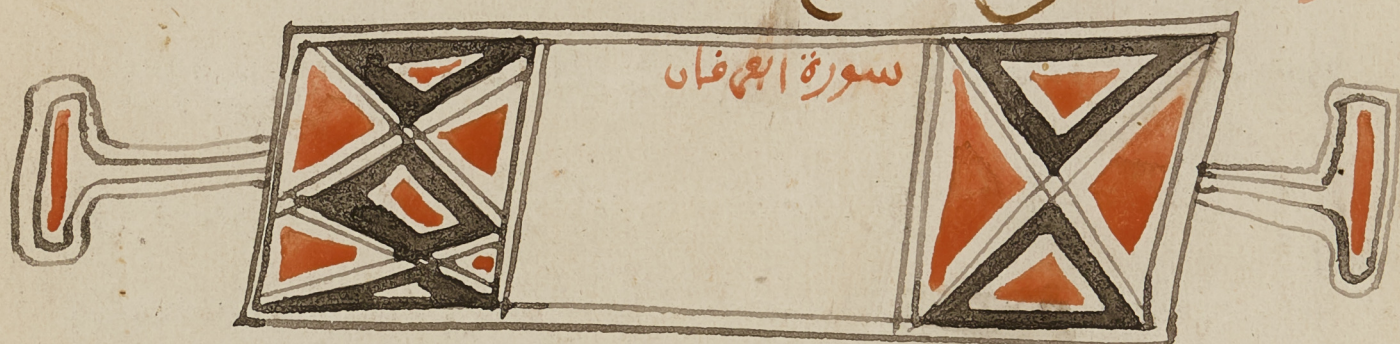 سورة الفرقان